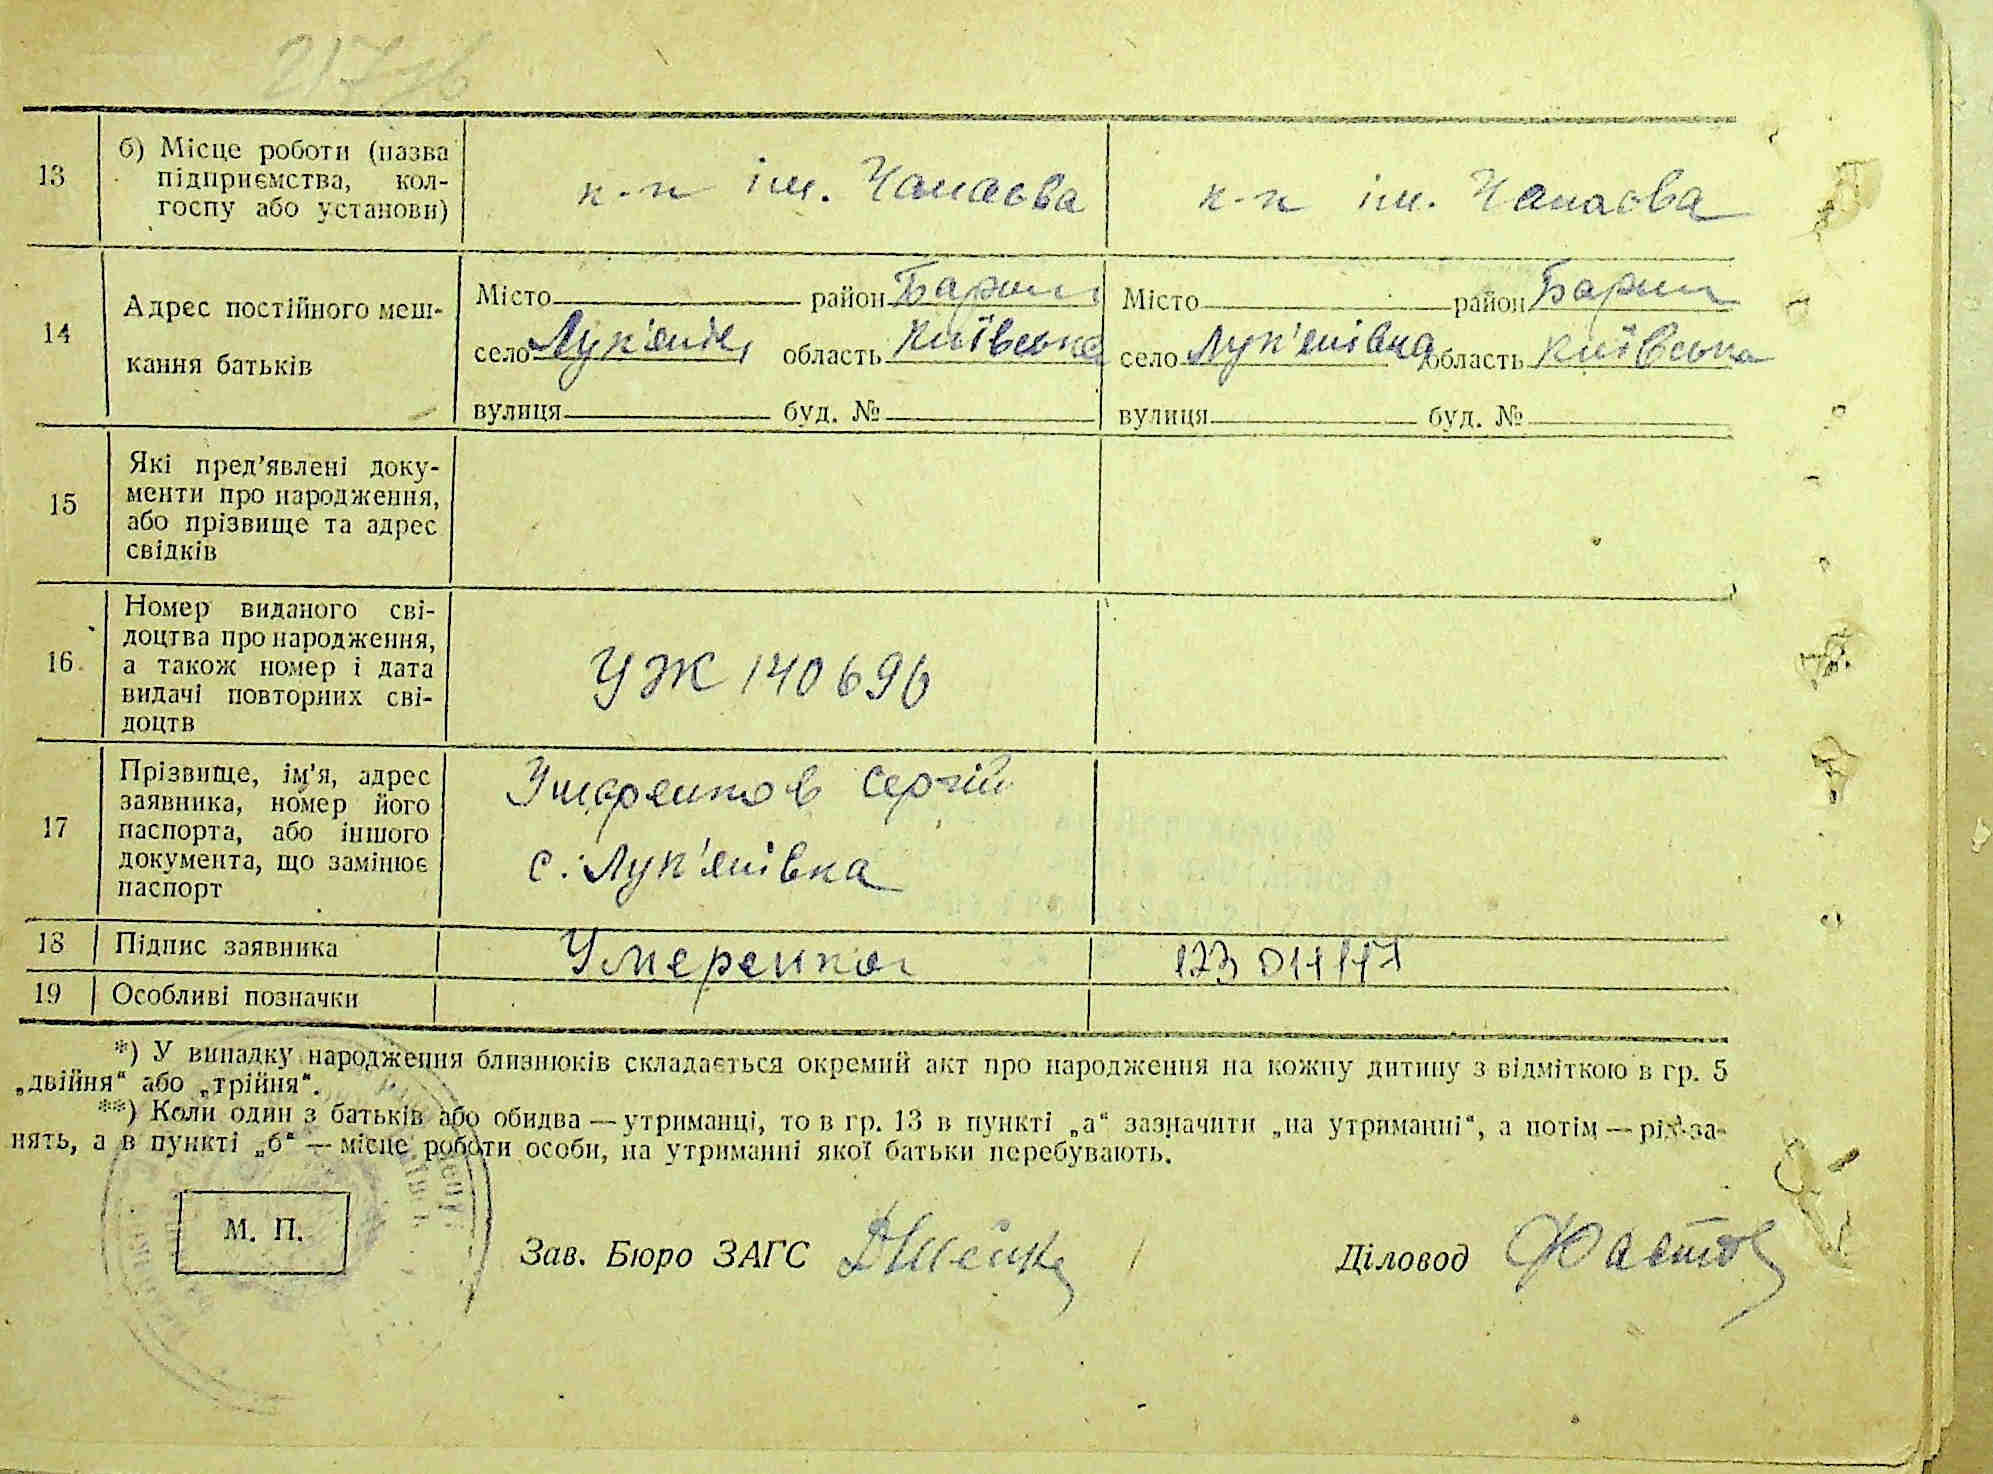 217
13 б) Місце роботи (назва
підприємства, кол-
госпу або установи)
к-п ім. Чапаєва к-п ім. Чапаєва
14 Адрес постійного меш-
кання батьків
Місто район Бариш Місто район Бариш
село Лук'янів область Київська село Лук'янівка область Київська
вулиця буд. № вулиця буд. №
15 Які пред’явлені доку-
менти про народження,
або прізвище та адрес
свідків
16 Номер виданого сві-
доцтва про народження,
а також номер і дата
видачі повторних сві-
доцтв
УЖ 140696
17 Прізвище, ім’я, адрес
заявника, номер його
паспорта, або іншого
документа, що замінює
паспорт
Умеренков Сергій
с. Лук'янівка
18 Підпис заявника Умеренков
19 Особливі позначки
*) У випадку народження близнюків складається окремий акт про народження на кожну дитину з відміткою в гр. 5
„двійня“ або „трійня“.
**) Коли один з батьків або обидва — утриманці, то в гр. 13 в пункті „а“ зазначити „на утриманні“, а потім — рід за-
нять, а в пункті „б“ — місце роботи особи, на утриманні якої батьки перебувають.
М. П.
Зав. Бюро ЗАГС Діловод